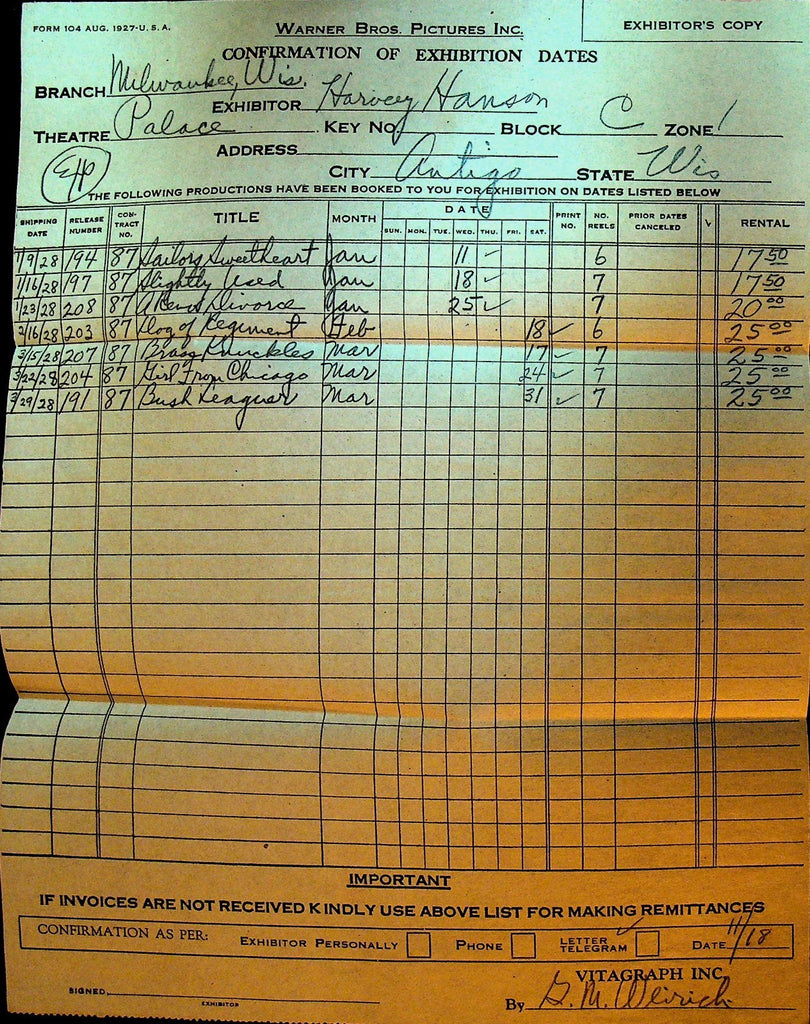 FORM 104 AUG. 1927-U. S. A.
WARNER BROS. PICTURES INC.
EXHIBITOR'S COPY
CONFIRMATION OF EXHIBITION DATES
BRANCH Milwaukee, Wis.
EXHIBITOR Harvey Hanson
THEATRE Palace KEY NO. BLOCK C ZONE 1
ADDRESS
CITY Antigo STATE Wis
THE FOLLOWING PRODUCTIONS HAVE BEEN BOOKED TO YOU FOR EXHIBITION ON DATES LISTED BELOW
SHIPPING DATE RELEASE NUMBER CONTRACT NO. TITLE MONTH DATE PRINT NO. NO. REELS PRIOR DATES CANCELED √ RENTAL
SUN. MON. TUE. WED. THU. FRI. SAT.
1/9/28 194 87 Sailors Sweetheart Jan 11 ✓ 6 17 50
1/16/28 197 87 Slightly Used Jan 18 ✓ 7 17 50
1/23/28 208 87 A Reno Divorce Jan 25 ✓ 7 20 00
2/16/28 203 87 Dog of Regiment Feb 18 ✓ 6 25 00
3/5/28 207 87 Brass Knuckles Mar 17 ✓ 7 25 00
3/22/28 204 87 Girl From Chicago Mar 24 ✓ 7 25 00
3/29/28 191 87 Bush Leaguer Mar 31 ✓ 7 25 00
IMPORTANT
IF INVOICES ARE NOT RECEIVED KINDLY USE ABOVE LIST FOR MAKING REMITTANCES
CONFIRMATION AS PER: EXHIBITOR PERSONALLY PHONE LETTER TELEGRAM DATE 11/18
VITAGRAPH INC.
SIGNED
EXHIBITOR
By G. M. Weirich